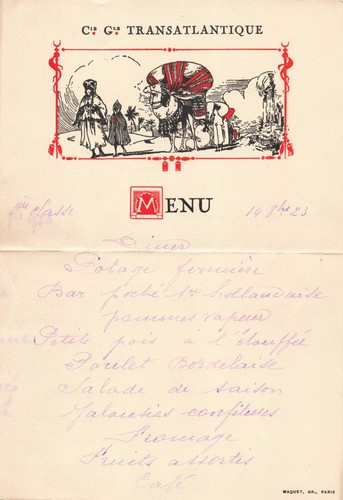 Cie Gle TRANSATLANTIQUE
MENU
1ère classe 14 8bre 23
Diner
Potage fermière
Bar poché Sce hollandaise
pommes vapeur
Petits pois à l'étouffée
Poulet Bordelaise
Salade de saison
Jalousies confitures
Fromage
Fruits assortis
Café
MAQUET, GR., PARIS